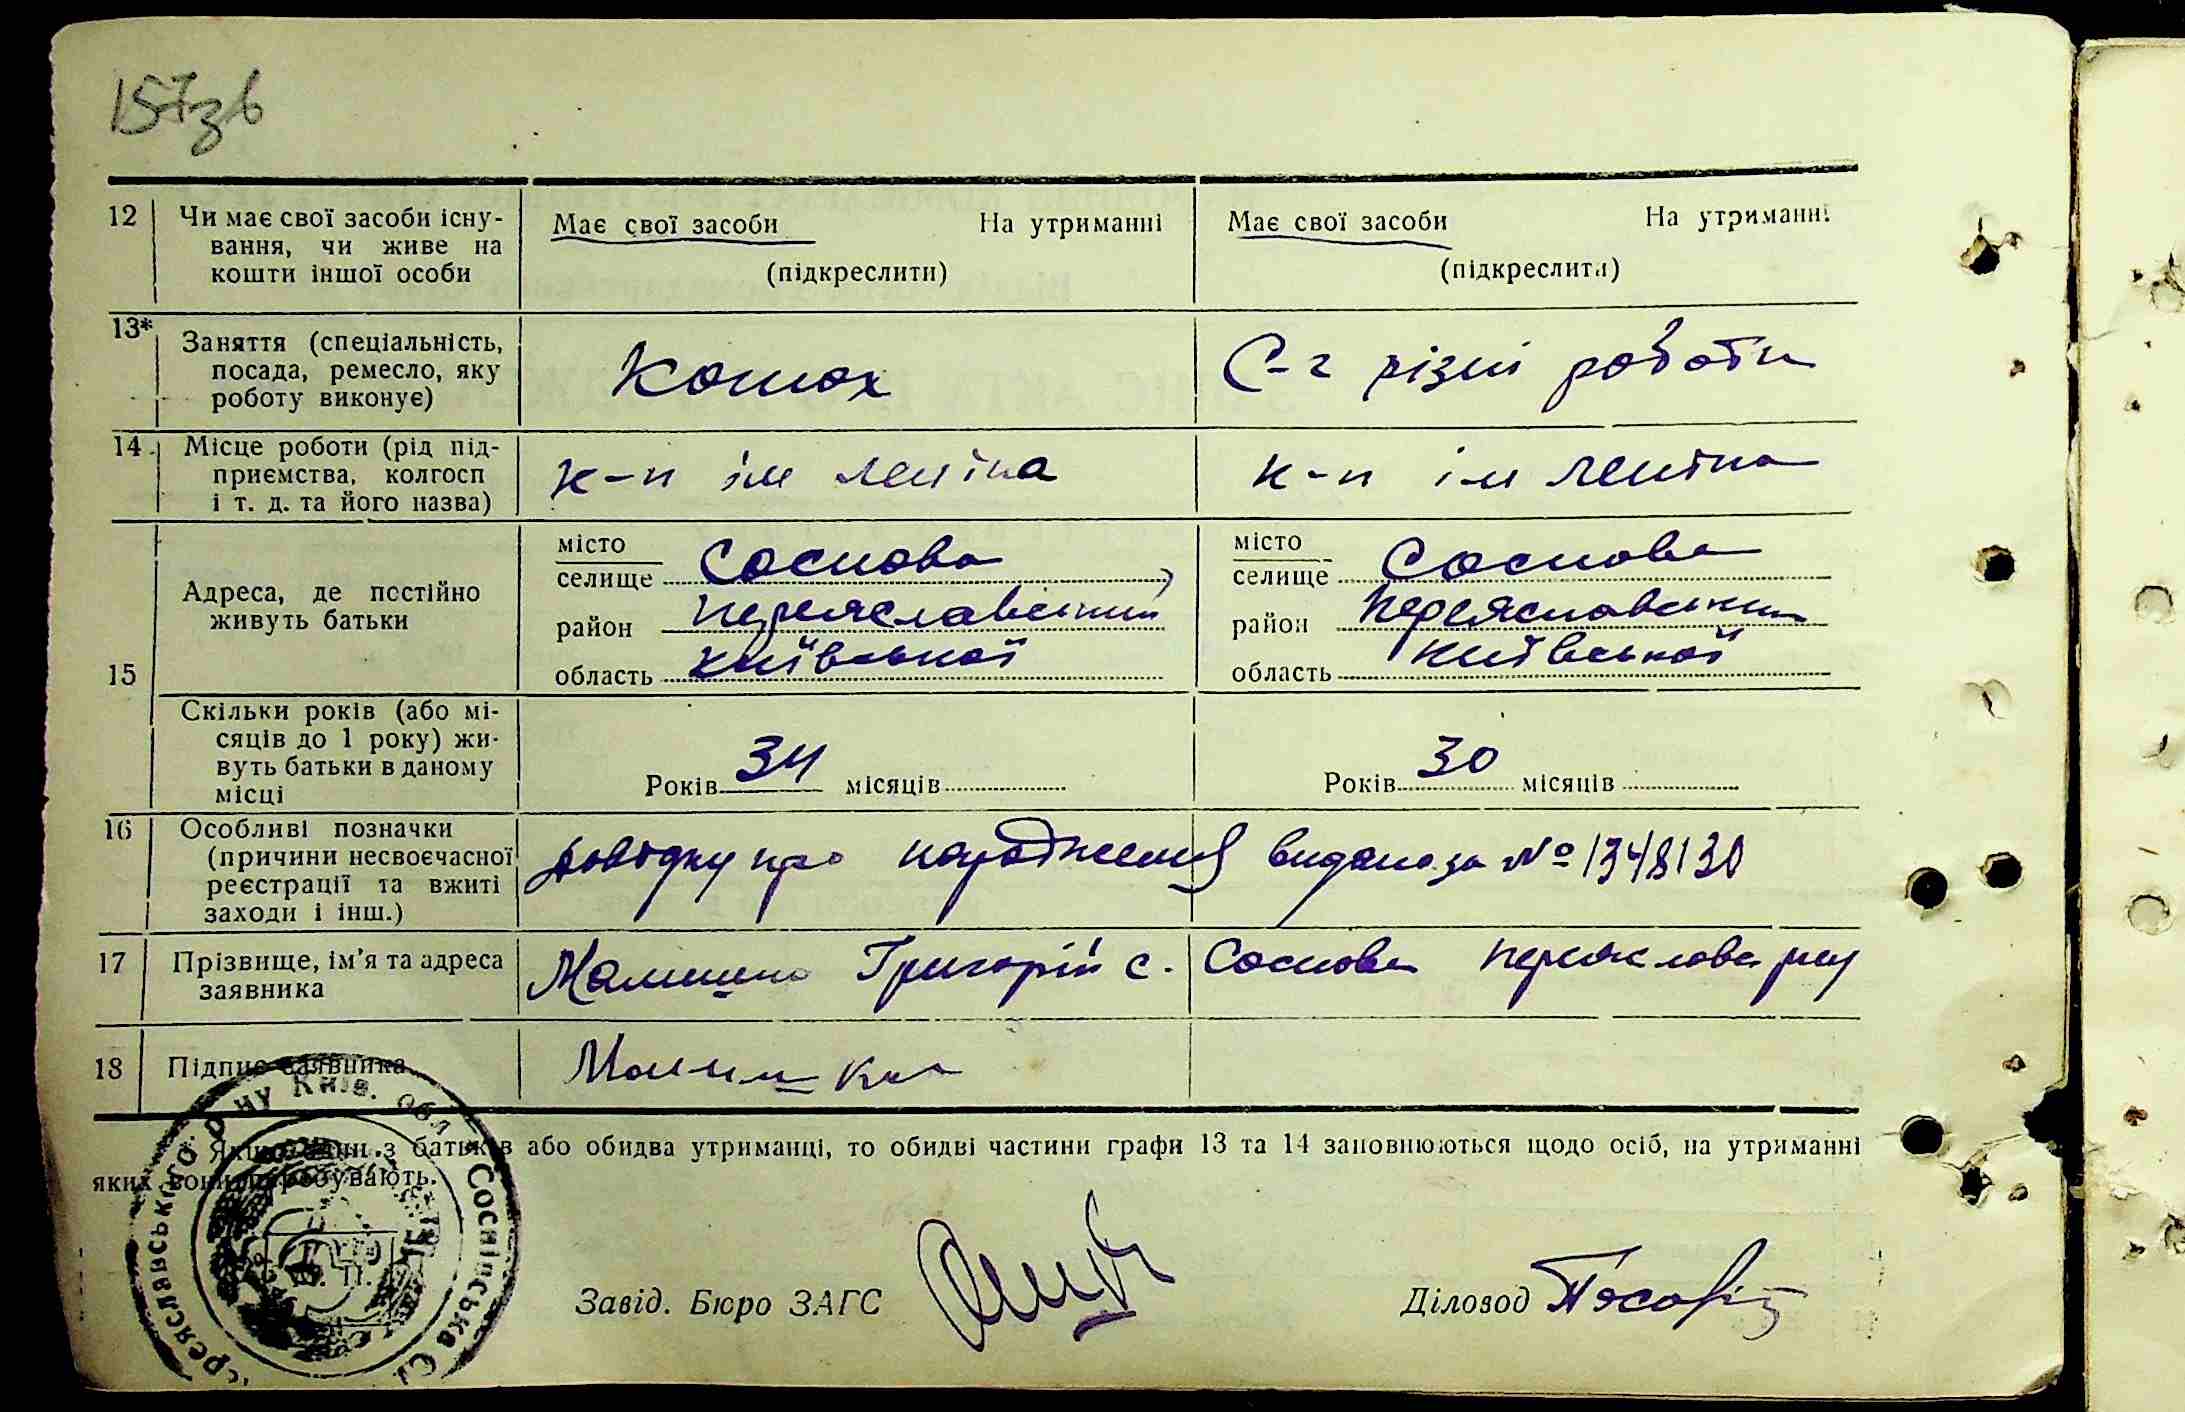 157зв
12 Чи має свої засоби існу-
вання, чи живе на
кошти іншої особи
Має свої засоби На утриманні
(підкреслити)
Має свої засоби На утриманні
(підкреслити)
13* Заняття (спеціальність,
посада, ремесло, яку
роботу виконує)
Конюх
С-г різні роботи
14 Місце роботи (рід під-
приємства, колгосп
і т. д. та його назва)
к-п ім Леніна
к-п ім Леніна
15
Адреса, де постійно
живуть батьки
місто
селище Соснова
район Переяславський
область Київської
місто
селище Соснова
район Переяславський
область Київської
Скільки років (або мі-
сяців до 1 року) жи-
вуть батьки в даному
місці
Років 34 місяців
Років 30 місяців
16 Особливі позначки
(причини несвоєчасної
реєстрації та вжиті
заходи і інш.)
Довідку про народження видано за №
17 Прізвище, ім'я та адреса
заявника
Григорій с. Соснова
18 Підпис заявника
Якщо один з батьків або обидва утриманці, то обидві частини графи 13 та 14 заповнюються щодо осіб, на утриманні
яких вони перебувають.
Завід. Бюро ЗАГС
Діловод